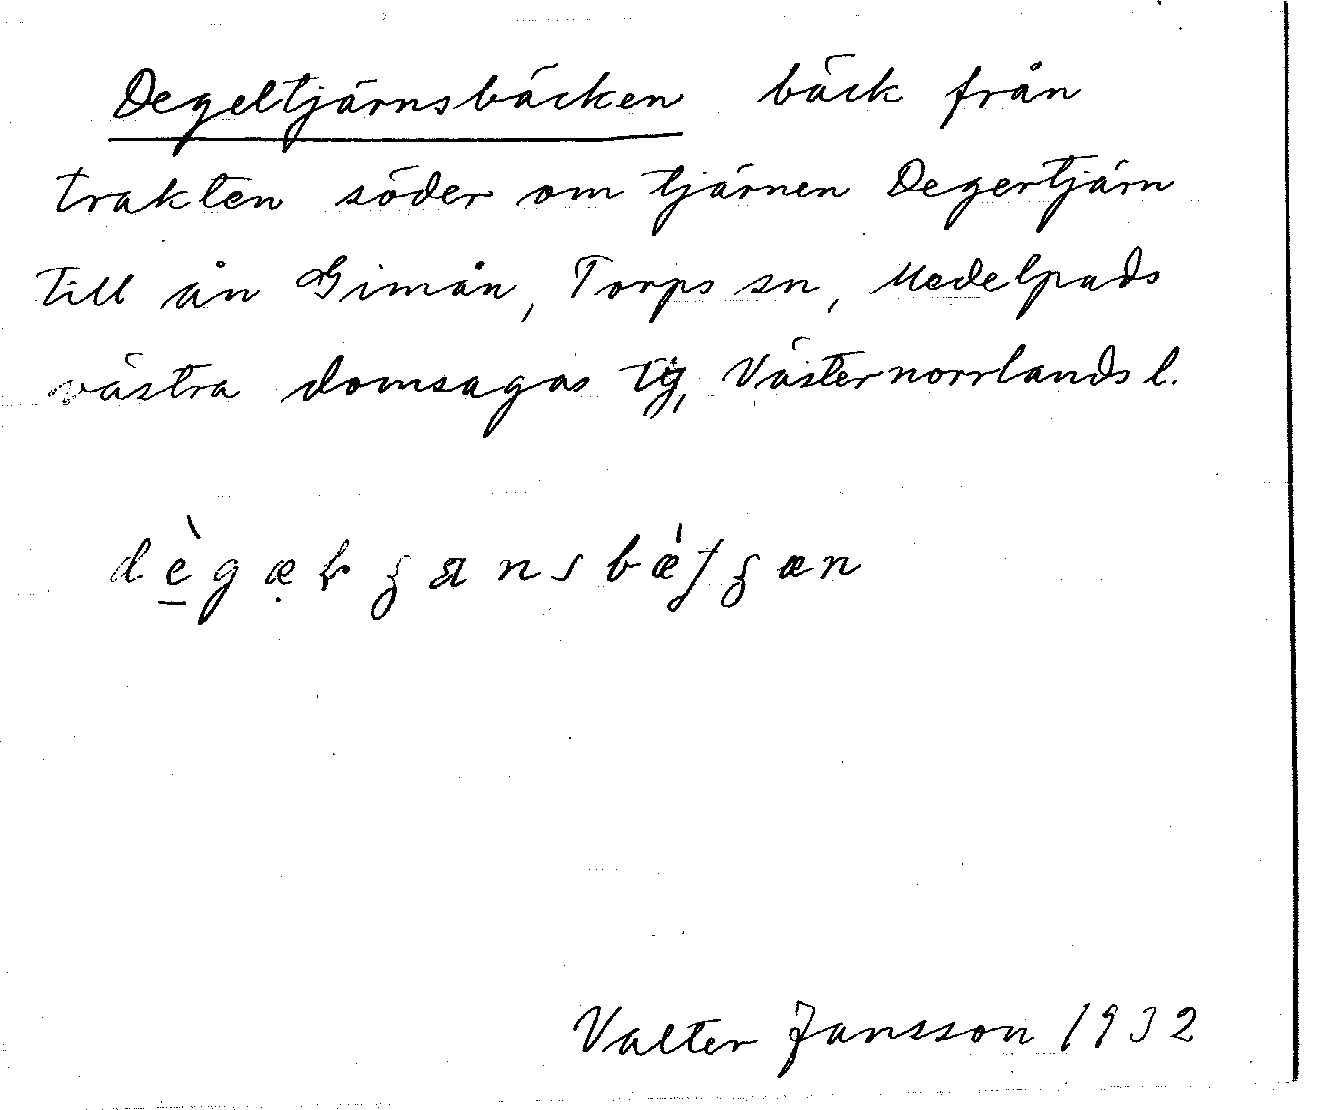 Degeltjärnsbäcken bäck från
trakten söder om tjärnen Degertjärn
till ån Gimån, Torps sn, Medelpads
västra domsagas tg, Västernorrlands l.
Valter Jansson 1932